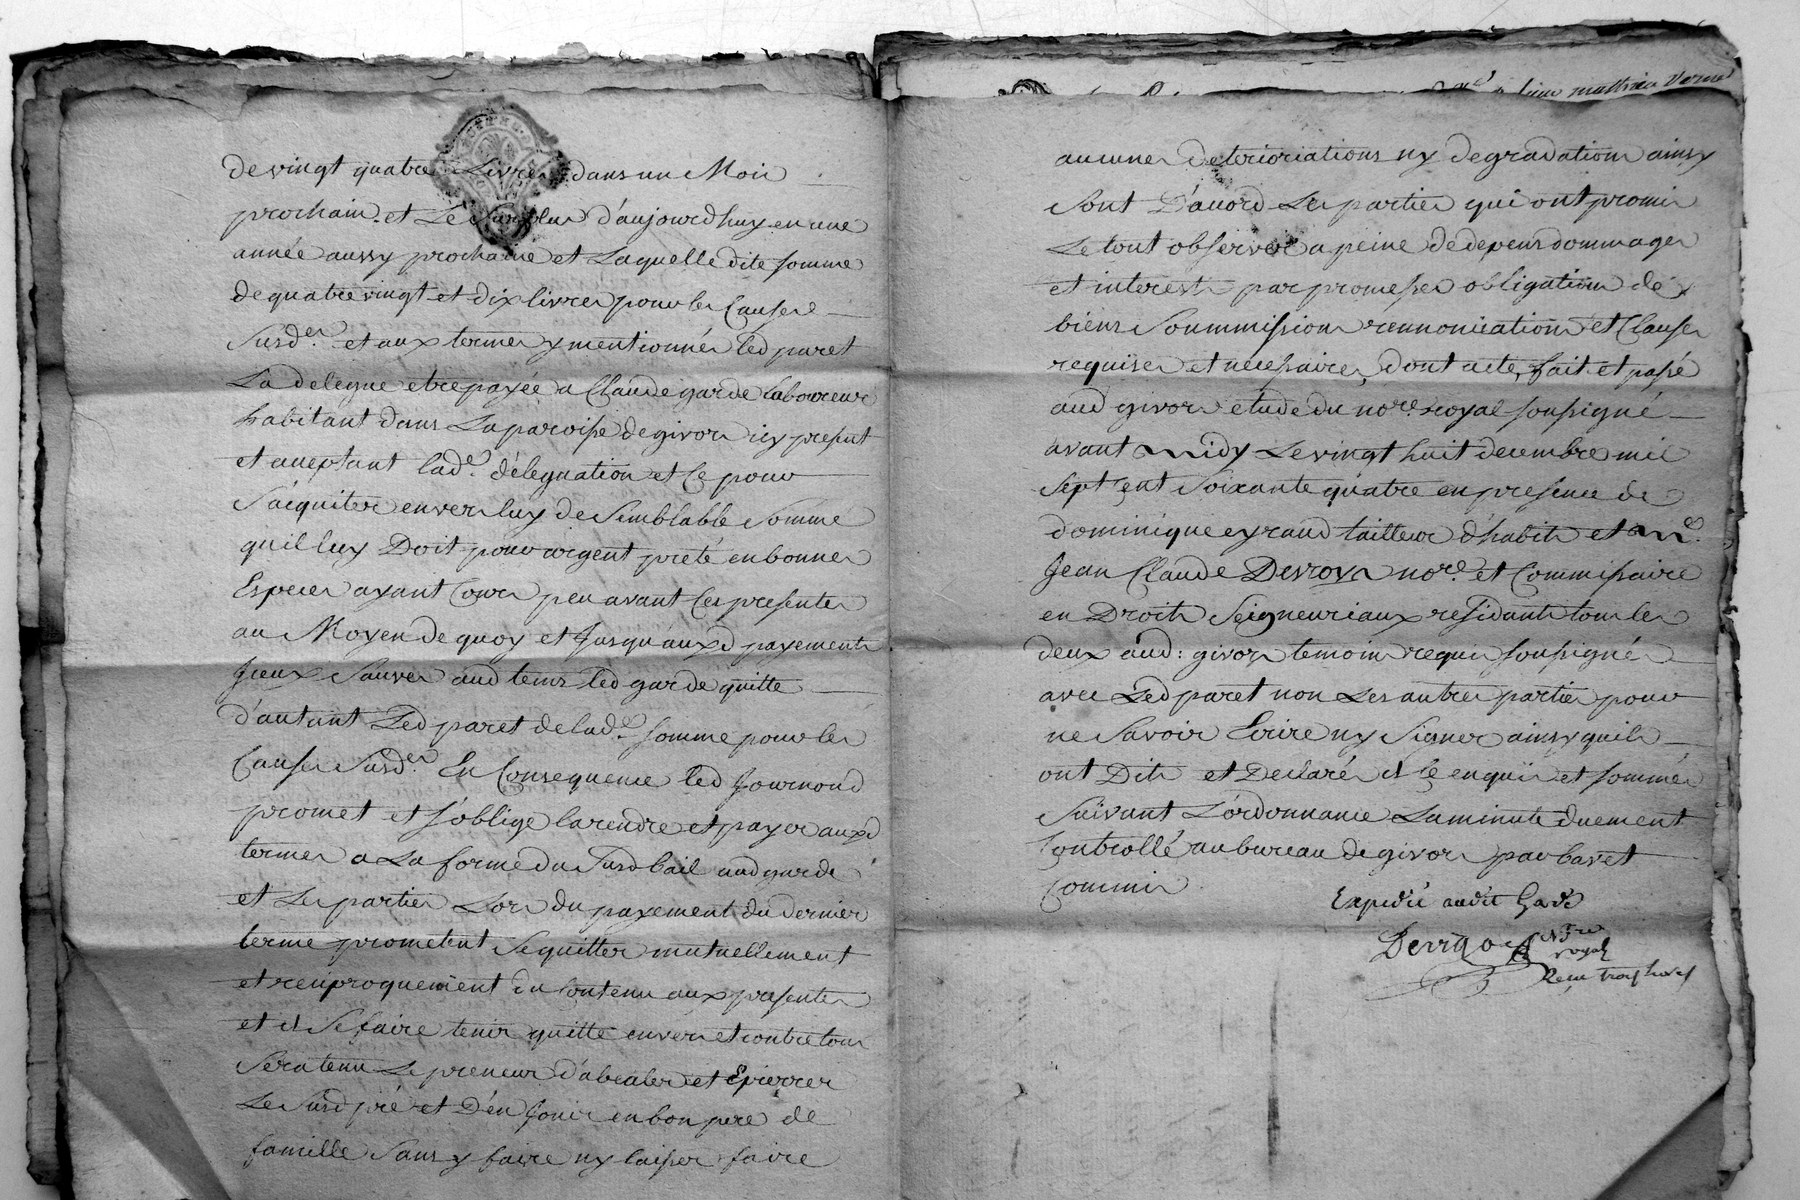 de vingt quatre Livres dans un Mois
prochain et Le Surplus d'aujourdhuy en une
année aussy prochaine et Laquelle dite somme
de quatre vingt et dix livres pour les Causes
susd.es et aux termes y mentionnés led paret
La delegue etre payée a Claude garde laboureur
habitant dans La paroisse de givors icy present
et aceptant lad.e délegnation et Ce pour
S'acquiter envers luy de Semblable Somme
quil luy Doit pour argent preté en bonnes
Especes ayant Cours peu avant Ces presentes
au Moyen de quoy et Jusqu'auxd payements
Jceux Sauves aud tems led garde quitte
d'autant Led paret de lad.e somme pour les
Causes Susd.es En Consequence led Journoud
promet et s'oblige la rendre et payer auxd
termes a La forme du Susd bail aud garde
et Les parties Lors du payement du dernier
terme promettent Se quitter mutuellement
et reciproquement du Contenu aux presentes
et Se faire tenir quitte envers et contre tous
Sera tenu Le preneur d'abealer et Epierrer
Le Susd pré et D'en Jouir en bon pere de
famille Sans y faire ny laisser faire
mathieu
aucunes deterioriations ny degradations ainsy
Sont D'acord Les parties qui ont promis
Le tout observer a peine de depens dommages
et interests par promesses obligations de
biens Soummissions rennonciations et Clauses
requises et necessaires, dont acte, fait et passé
aud givors etude du no.re royal soussigné
avant midy Le vingt huit decembre mil
Sept Cent Soixante quatre en presence de
dominique eyraud tailleur d'habits et m.e
Jean Claude Devroys no.re et Commissaire
en Droits Seigneuriaux residants tous les
deux aud: givors temoins requis soussignés
avec Led paret non Les autres parties pour
ne Savoir Ecrire ny Signer ainsy quils
ont Dits et Declaré de ce enquis et sommés
Suivant L'ordonnance La minute duement
Controllé au bureau de givors par bavet
Commis
Expedié audit Garde
royal
Reçu trois livres